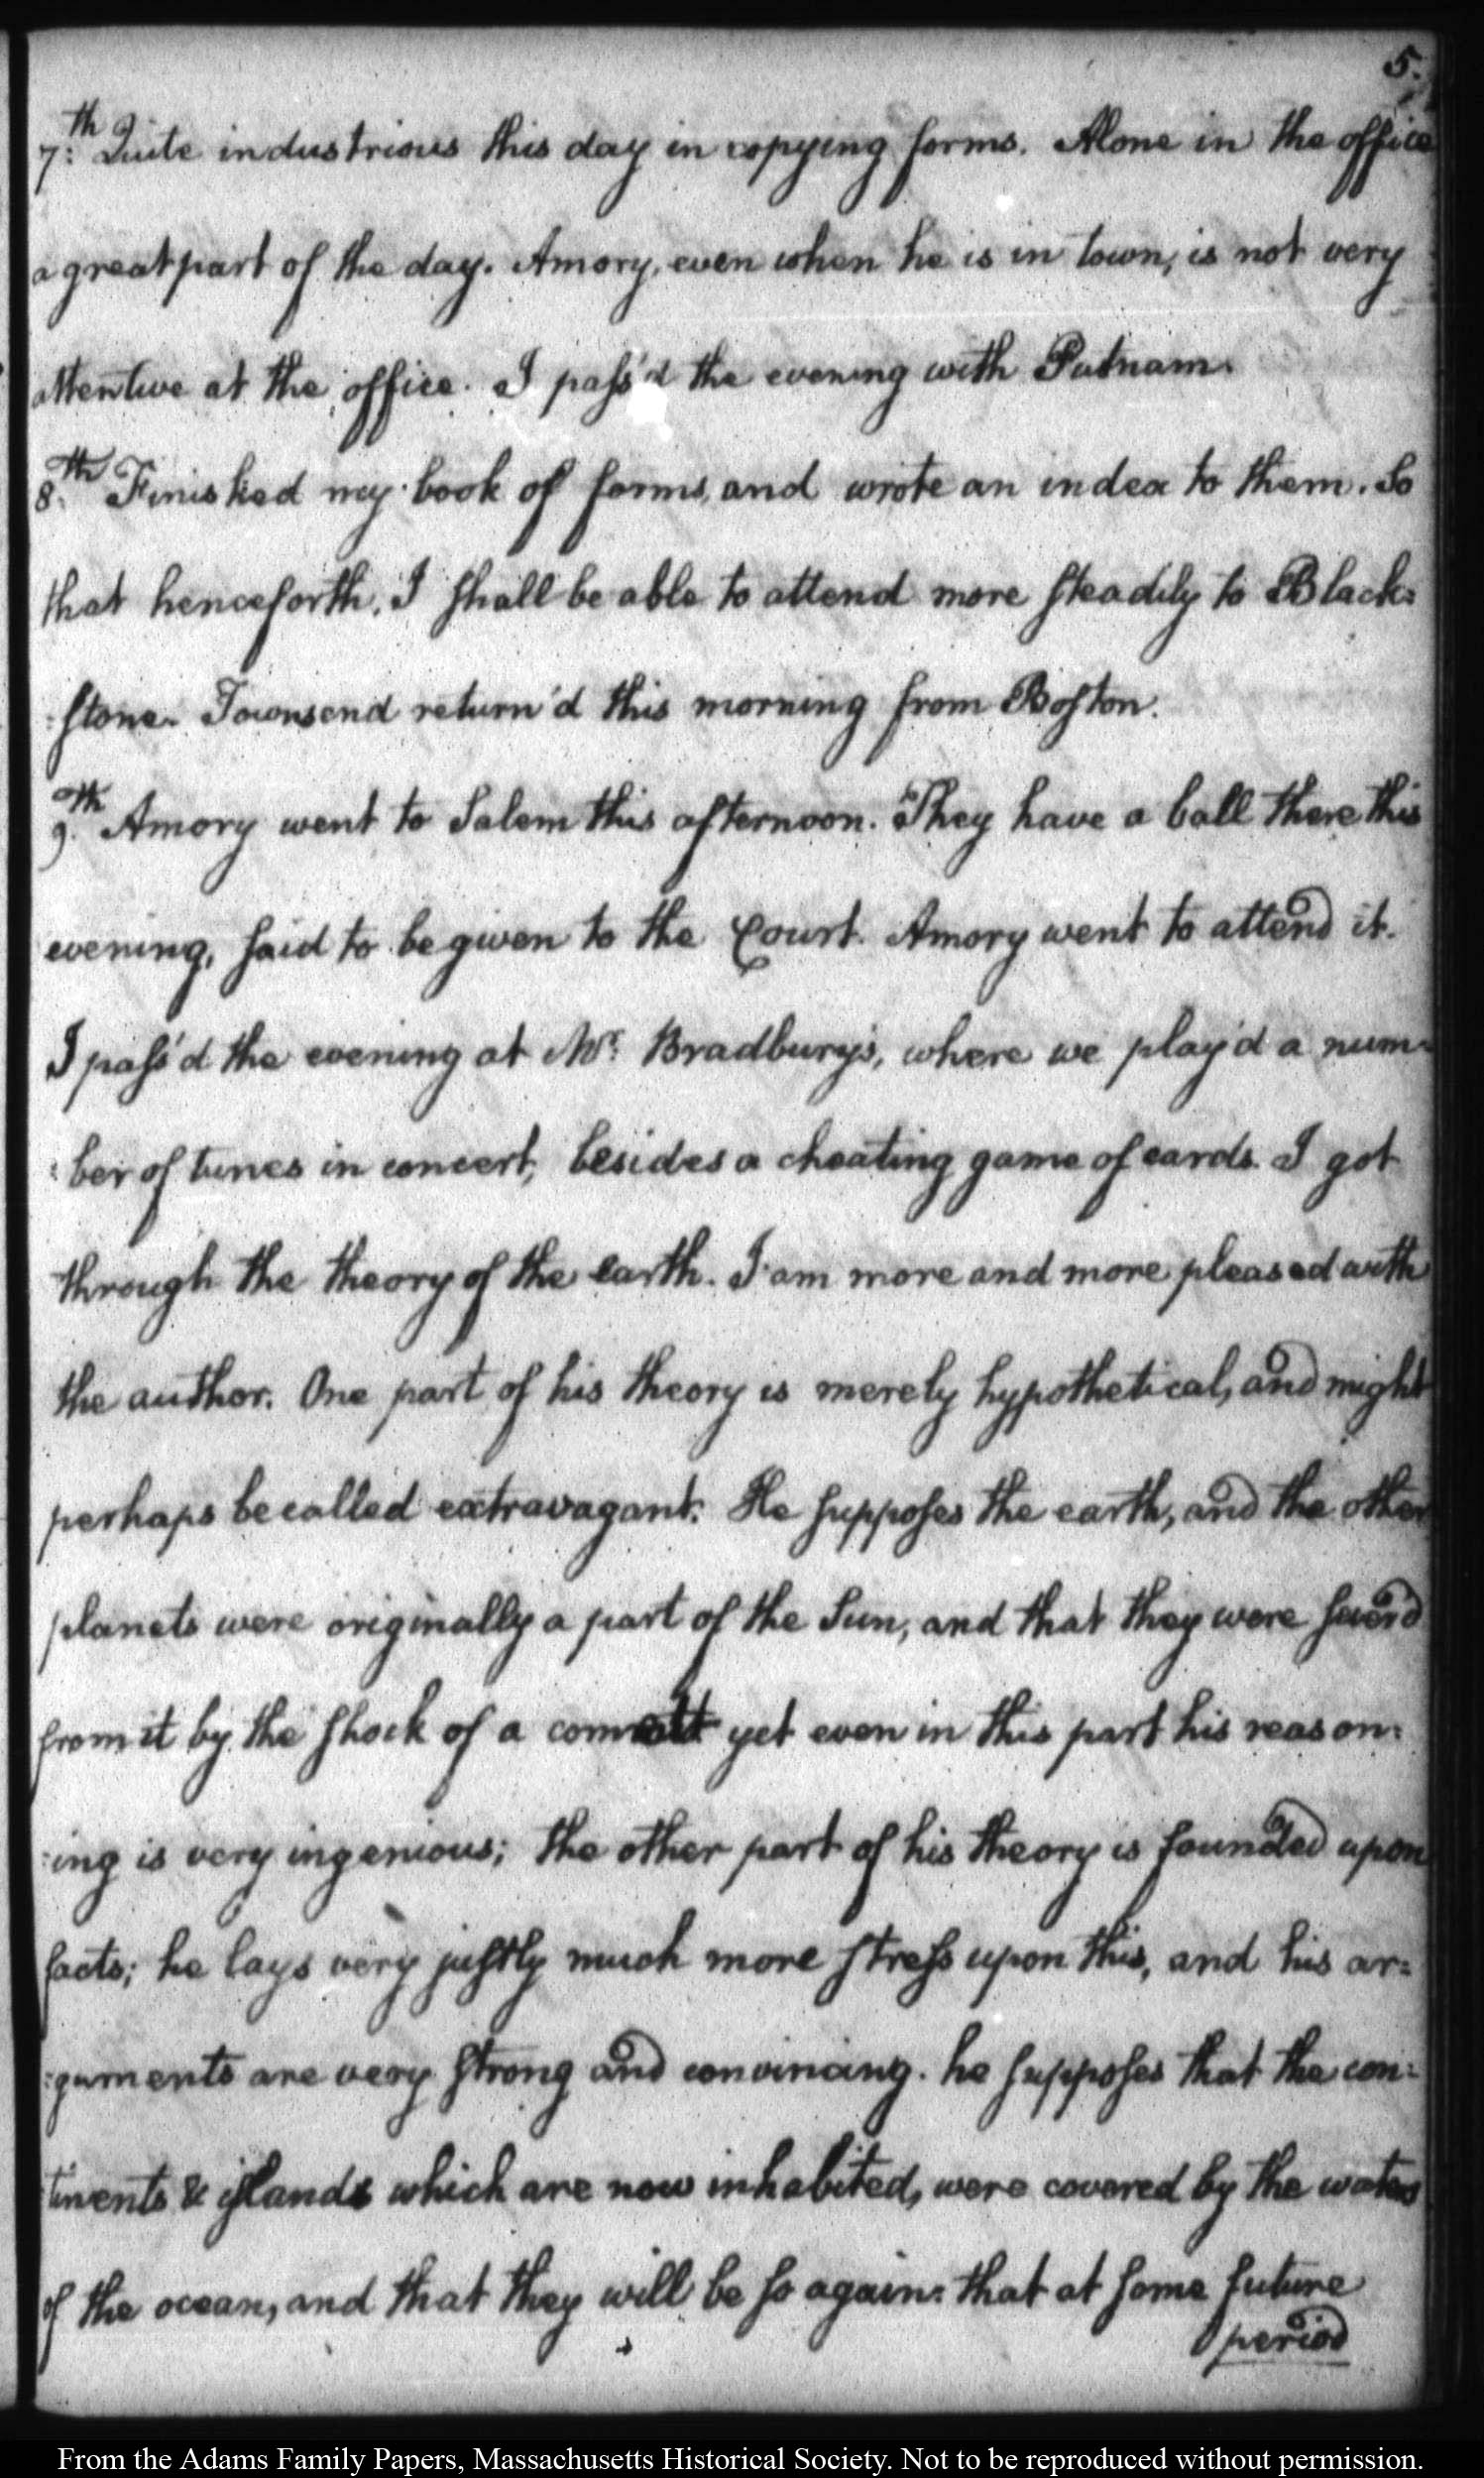 5.
7.th Quite industrious this day in copying forms. Alone in the office
a great part of the day. Amory, even when he is in town, is not very
attentive at the office. I pass'd the evening with Putnam.
8.th Finished my book of forms, and wrote an index to them. So
that henceforth, I shall be able to attend more steadily to Black:
:stone. Townsend return'd this morning from Boston.
9.th Amory went to Salem this afternoon. They have a ball there this
evening, said to be given to the Court. Amory went to attend it.
I pass'd the evening at Mr. Bradbury's, where we play'd a num:
:ber of tunes in concert, besides a cheating game of cards. I got
through the theory of the earth. I am more and more pleased with
the author. One part of his theory is merely hypothetical, and might
perhaps be called extravagant. He supposes the earth, and the other
planets were originally a part of the Sun, and that they were sever'd
from it by the shock of a comett yet even in this part his reason:
:ing is very ingenious; the other part of his theory is founded upon
facts; he lays very justly much more stress upon this, and his ar:
:guments are very strong and convincing. he supposes that the con:
:tinents & islands which are now inhabited, were covered by the waters
of the ocean, and that they will be so again: that at some future
period
From the Adams Family Papers, Massachusetts Historical Society. Not to be reproduced without permission.